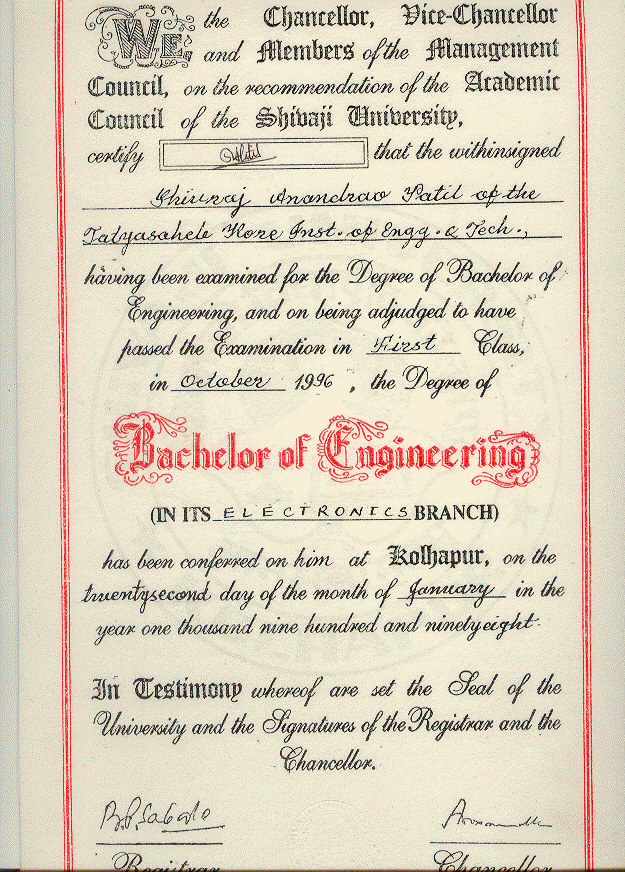 WE, the Chancellor, Vice-Chancellor
and Members of the Management
Council, on the recommendation of the Academic
Council of the Shivaji University,
certify that the withinsigned
Shivraj Anandrao Patil of the
Tatyasaheb Kore Inst. of Engg. & Tech.,
having been examined for the Degree of Bachelor of
Engineering, and on being adjudged to have
passed the Examination in First Class,
in October 1996, the Degree of
Bachelor of Engineering
(IN ITS ELECTRONICS BRANCH)
has been conferred on him at Kolhapur, on the
twentysecond day of the month of January in the
year one thousand nine hundred and ninetyeight.
In Testimony whereof are set the Seal of the
University and the Signatures of the Registrar and the
Chancellor.
Registrar Chancellor